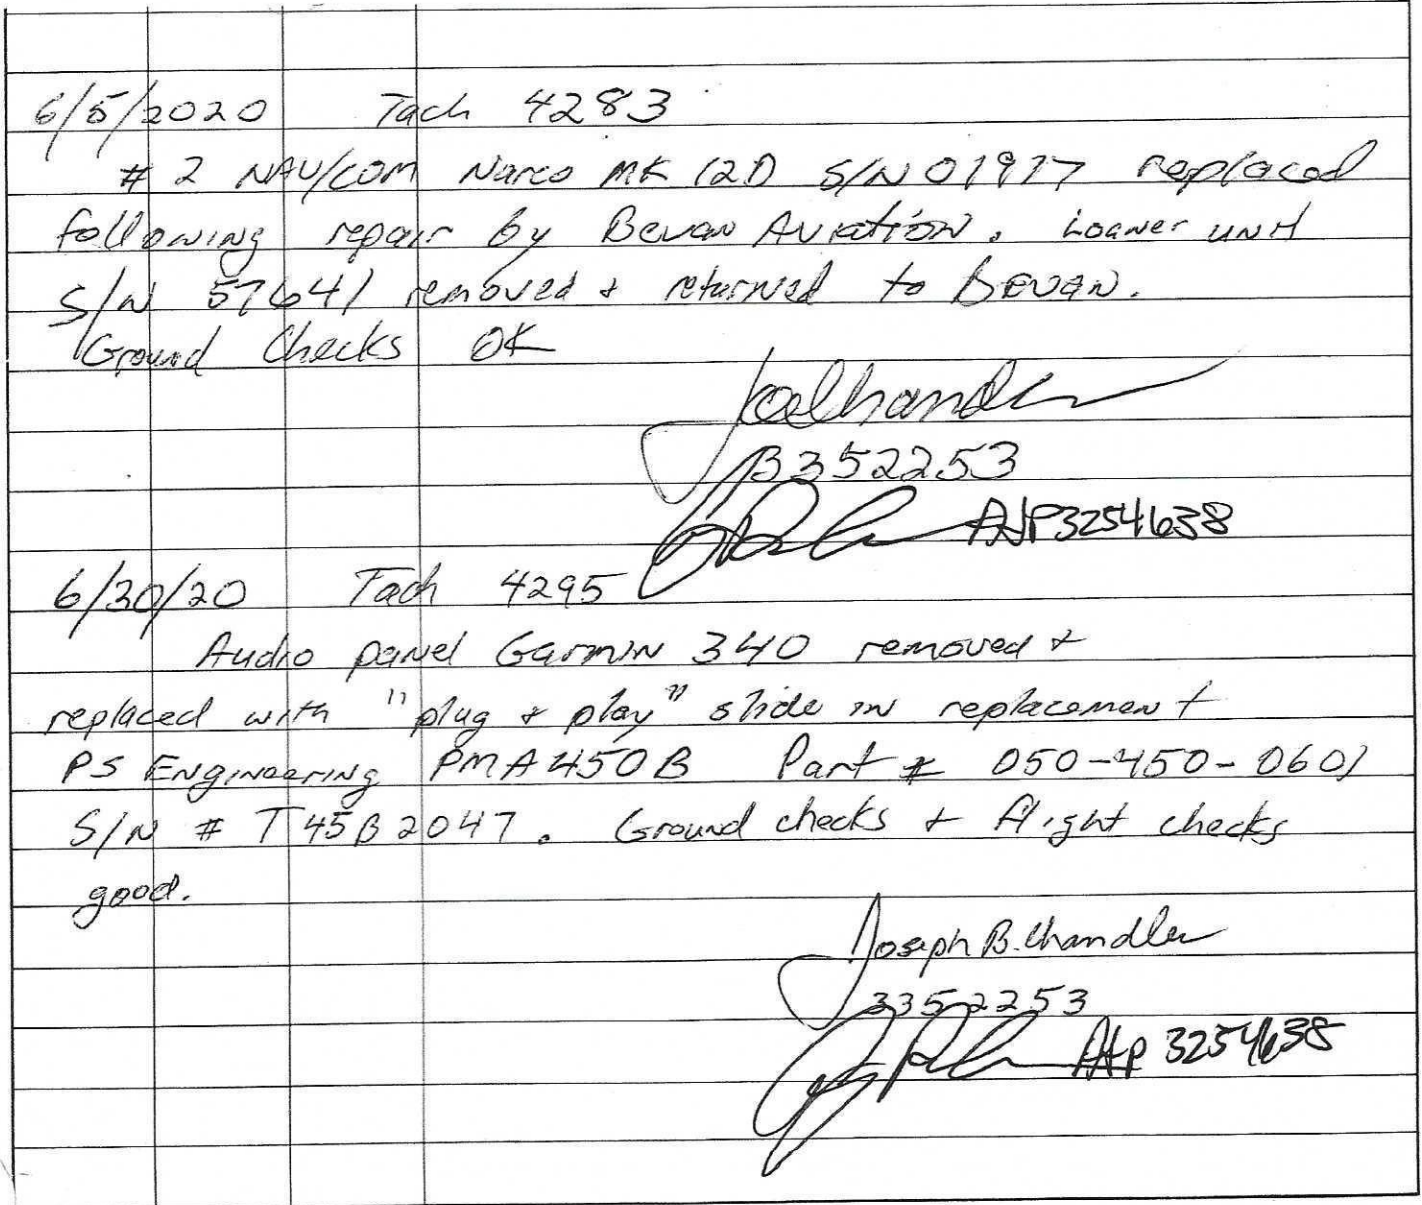 6/5/2020 Tach 4283
# 2 NAV/COM Narco MK 12D S/N 01977 replaced
following repair by Bevan Aviation. Loaner unit
S/N 57641 removed & returned to Bevan.
Ground Checks OK
Joe Chandler
3352253
A&P 3254638
6/30/20 Tach 4295
Audio panel Garmin 340 removed &
replaced with "plug & play" slide in replacement
PS Engineering PMA450B Part # 050-450-0601
S/N # T45B2047. Ground checks & flight checks
good.
Joseph B. Chandler
3352253
A&P 3254638